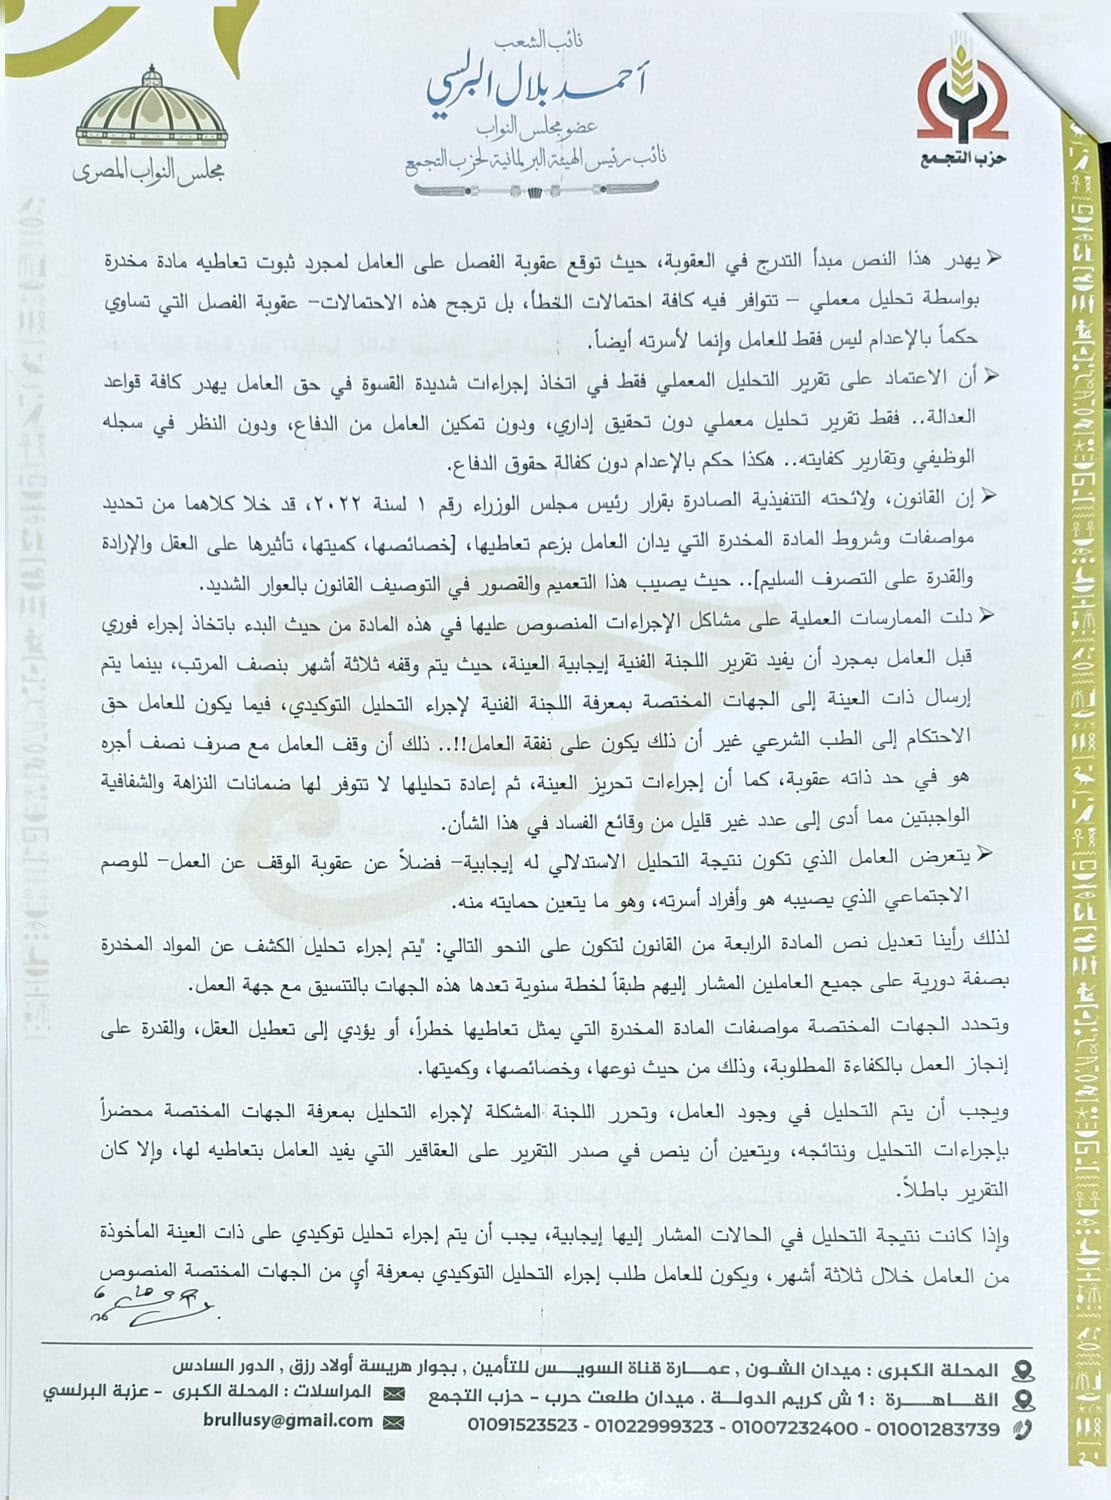 نائب الشعب
أحمد بلال البرلسي
عضو مجلس النواب
نائب رئيس الهيئة البرلمانية لحزب التجمع
حزب التجمع
مجلس النواب المصرى
➢ يهدر هذا النص مبدأ التدرج في العقوبة، حيث توقع عقوبة الفصل على العامل لمجرد ثبوت تعاطيه مادة مخدرة
بواسطة تحليل معملي – تتوافر فيه كافة احتمالات الخطأ، بل ترجح هذه الاحتمالات– عقوبة الفصل التي تساوي
حكماً بالإعدام ليس فقط للعامل وإنما لأسرته أيضاً.
➢ أن الاعتماد على تقرير التحليل المعملي فقط في اتخاذ إجراءات شديدة القسوة في حق العامل يهدر كافة قواعد
العدالة.. فقط تقرير تحليل معملي دون تحقيق إداري، ودون تمكين العامل من الدفاع، ودون النظر في سجله
الوظيفي وتقارير كفايته.. هكذا حكم بالإعدام دون كفالة حقوق الدفاع.
➢ إن القانون، ولائحته التنفيذية الصادرة بقرار رئيس مجلس الوزراء رقم ١ لسنة ٢٠٢٢، قد خلا كلاهما من تحديد
مواصفات وشروط المادة المخدرة التي يدان العامل بزعم تعاطيها، [خصائصها، كميتها، تأثيرها على العقل والإرادة
والقدرة على التصرف السليم].. حيث يصيب هذا التعميم والقصور في التوصيف القانون بالعوار الشديد.
➢ دلت الممارسات العملية على مشاكل الإجراءات المنصوص عليها في هذه المادة من حيث البدء باتخاذ إجراء فوري
قبل العامل بمجرد أن يفيد تقرير اللجنة الفنية إيجابية العينة، حيث يتم وقفه ثلاثة أشهر بنصف المرتب، بينما يتم
إرسال ذات العينة إلى الجهات المختصة بمعرفة اللجنة الفنية لإجراء التحليل التوكيدي، فيما يكون للعامل حق
الاحتكام إلى الطب الشرعي غير أن ذلك يكون على نفقة العامل!!.. ذلك أن وقف العامل مع صرف نصف أجره
هو في حد ذاته عقوبة، كما أن إجراءات تحريز العينة، ثم إعادة تحليلها لا تتوفر لها ضمانات النزاهة والشفافية
الواجبتين مما أدى إلى عدد غير قليل من وقائع الفساد في هذا الشأن.
➢ يتعرض العامل الذي تكون نتيجة التحليل الاستدلالي له إيجابية– فضلاً عن عقوبة الوقف عن العمل– للوصم
الاجتماعي الذي يصيبه هو وأفراد أسرته، وهو ما يتعين حمايته منه.
لذلك رأينا تعديل نص المادة الرابعة من القانون لتكون على النحو التالي: "يتم إجراء تحليل الكشف عن المواد المخدرة
بصفة دورية على جميع العاملين المشار إليهم طبقاً لخطة سنوية تعدها هذه الجهات بالتنسيق مع جهة العمل.
وتحدد الجهات المختصة مواصفات المادة المخدرة التي يمثل تعاطيها خطراً، أو يؤدي إلى تعطيل العقل، والقدرة على
إنجاز العمل بالكفاءة المطلوبة، وذلك من حيث نوعها، وخصائصها، وكميتها.
ويجب أن يتم التحليل في وجود العامل، وتحرر اللجنة المشكلة لإجراء التحليل بمعرفة الجهات المختصة محضراً
بإجراءات التحليل ونتائجه، ويتعين أن ينص في صدر التقرير على العقاقير التي يفيد العامل بتعاطيه لها، وإلا كان
التقرير باطلاً.
وإذا كانت نتيجة التحليل في الحالات المشار إليها إيجابية، يجب أن يتم إجراء تحليل توكيدي على ذات العينة المأخوذة
من العامل خلال ثلاثة أشهر، ويكون للعامل طلب إجراء التحليل التوكيدي بمعرفة أي من الجهات المختصة المنصوص
المحلة الكبرى : ميدان الشون , عمارة قناة السويس للتأمين , بجوار هريسة أولاد رزق , الدور السادس
القاهرة : 1 ش كريم الدولة . ميدان طلعت حرب - حزب التجمع المراسلات : المحلة الكبرى - عزبة البرلسي
01091523523 - 01022999323 - 01007232400 - 01001283739 brullusy@gmail.com